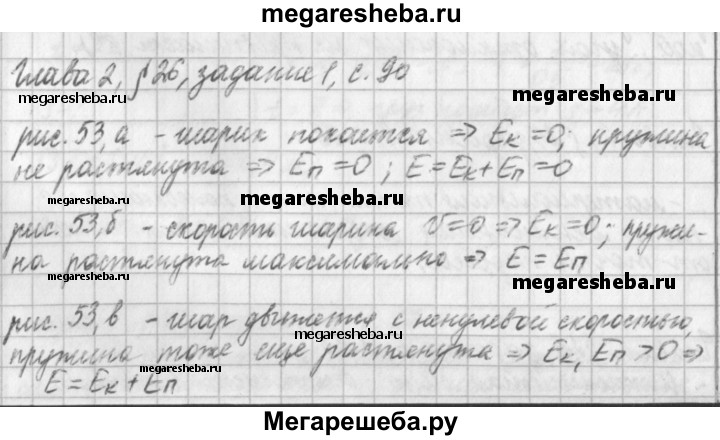 megaresheba.ru
Глава 2, § 26, задание 1, с. 90
megaresheba.ru
megaresheba.ru
рис. 53, а - шарик покоится => Eк = 0; пружина
не растянута => Eп = 0; E = Eк + Eп = 0
megaresheba.ru
megaresheba.ru
рис. 53, б - скорость шарика v = 0 => Eк = 0; пружи-
на растянута максимально => E = Eп
megaresheba.ru
megaresheba.ru
рис. 53, в - шар движется с ненулевой скоростью,
пружина тоже еще растянута => Eк, Eп > 0 =>
megaresheba.ru
megaresheba.ru
E = Eк + Eп
megaresheba.ru
Мегарешеба.ру